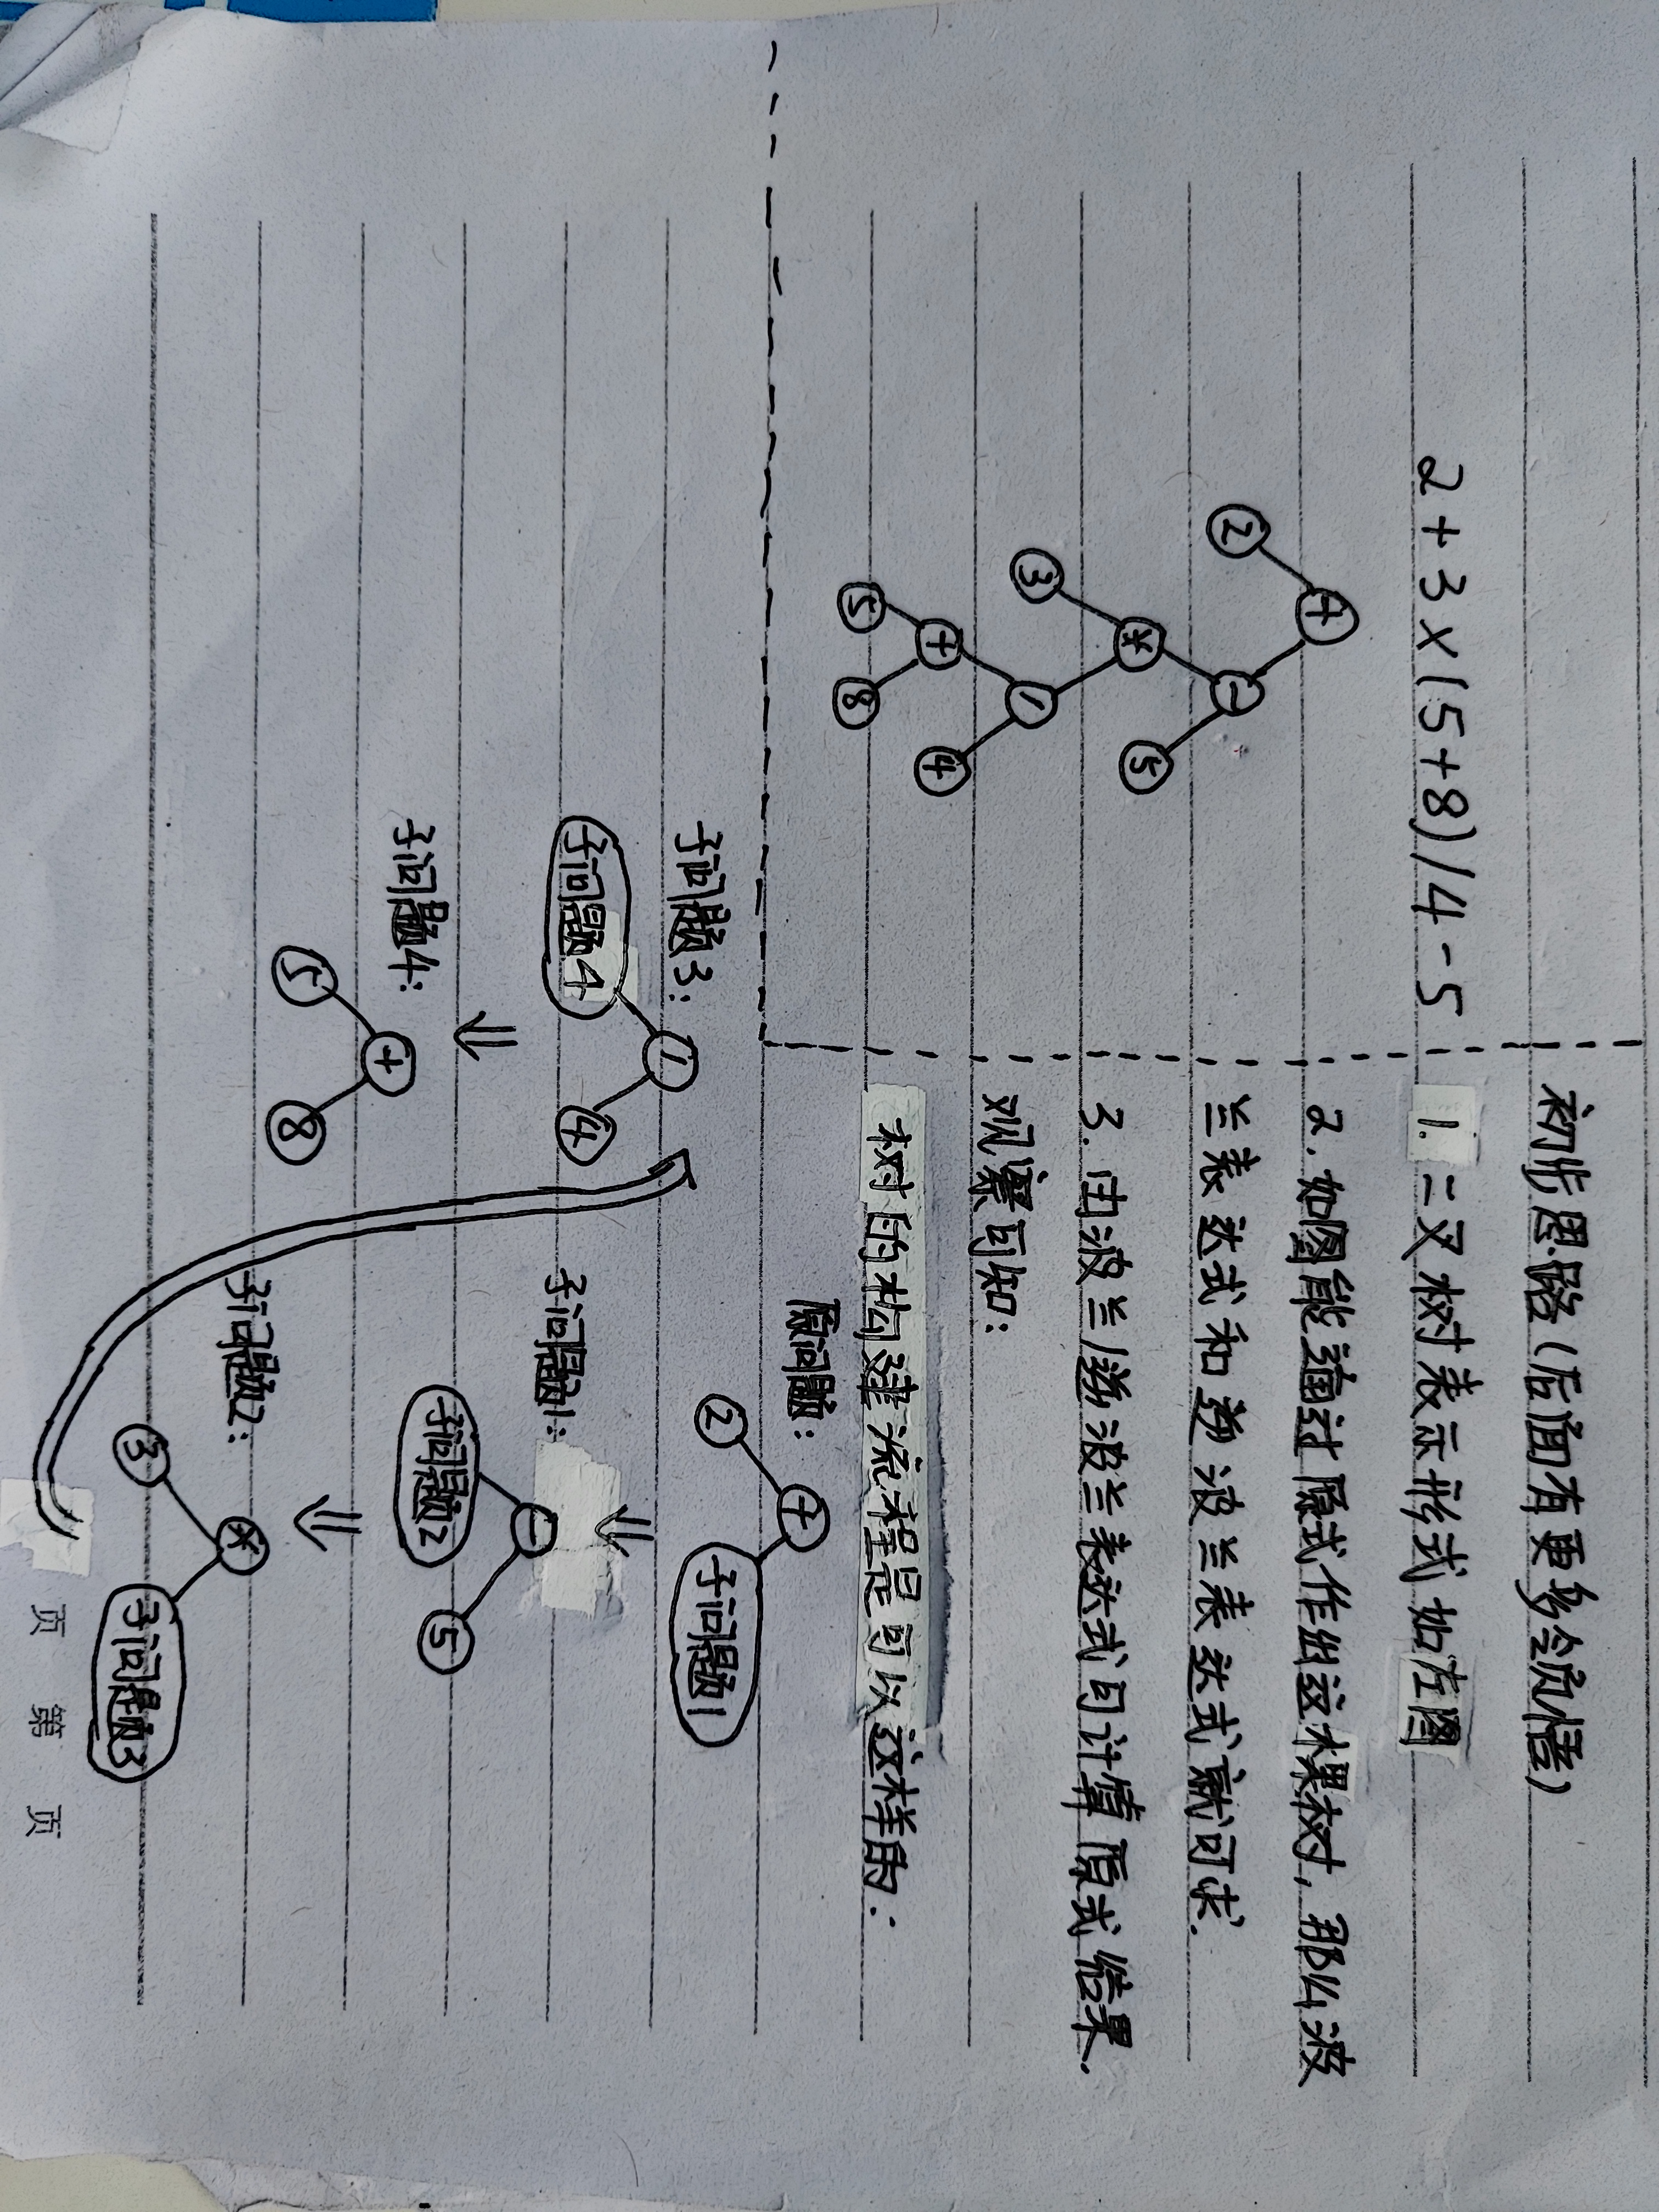 2+3×(5+8)/4-5
+
2
-
*
5
3
/
+
4
5
8
初步思路(后面有更多会心情)
1. 二叉树表示形式如左图
2. 如图能通过原式作出这棵树，那么波
兰表达式和逆波兰表达式就可求.
3. 由波兰/逆波兰表达式可计算原式结果.
观察可知:
树的构建流程是可以这样的:
原问题:
+
2
子问题1
子问题1:
-
子问题2
5
子问题2:
*
3
子问题3
子问题3:
/
子问题4
4
子问题4:
+
5
8
页 第 页